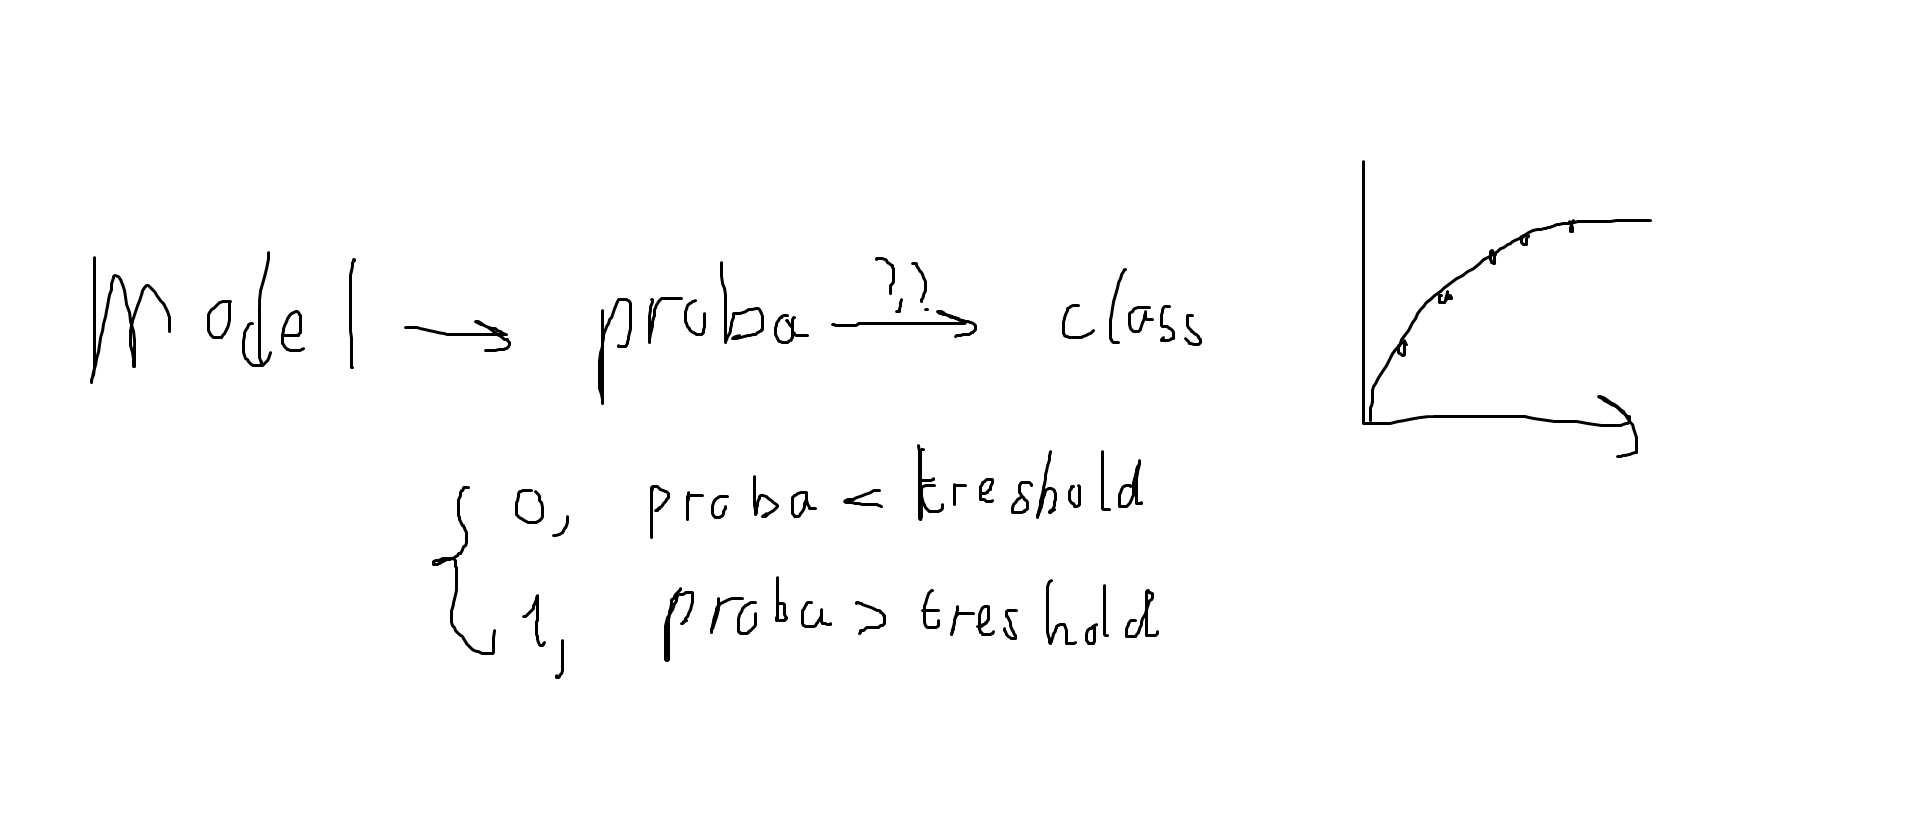 Model → proba ?? → class
0, proba < treshold
1, proba > treshold